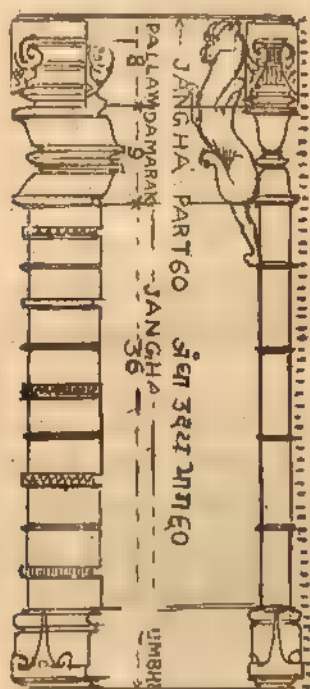 JANGHA PART 60 जंघा उदय भाग ६०
PALLAW DAMARAK JANGHA UMBH
8 9 36